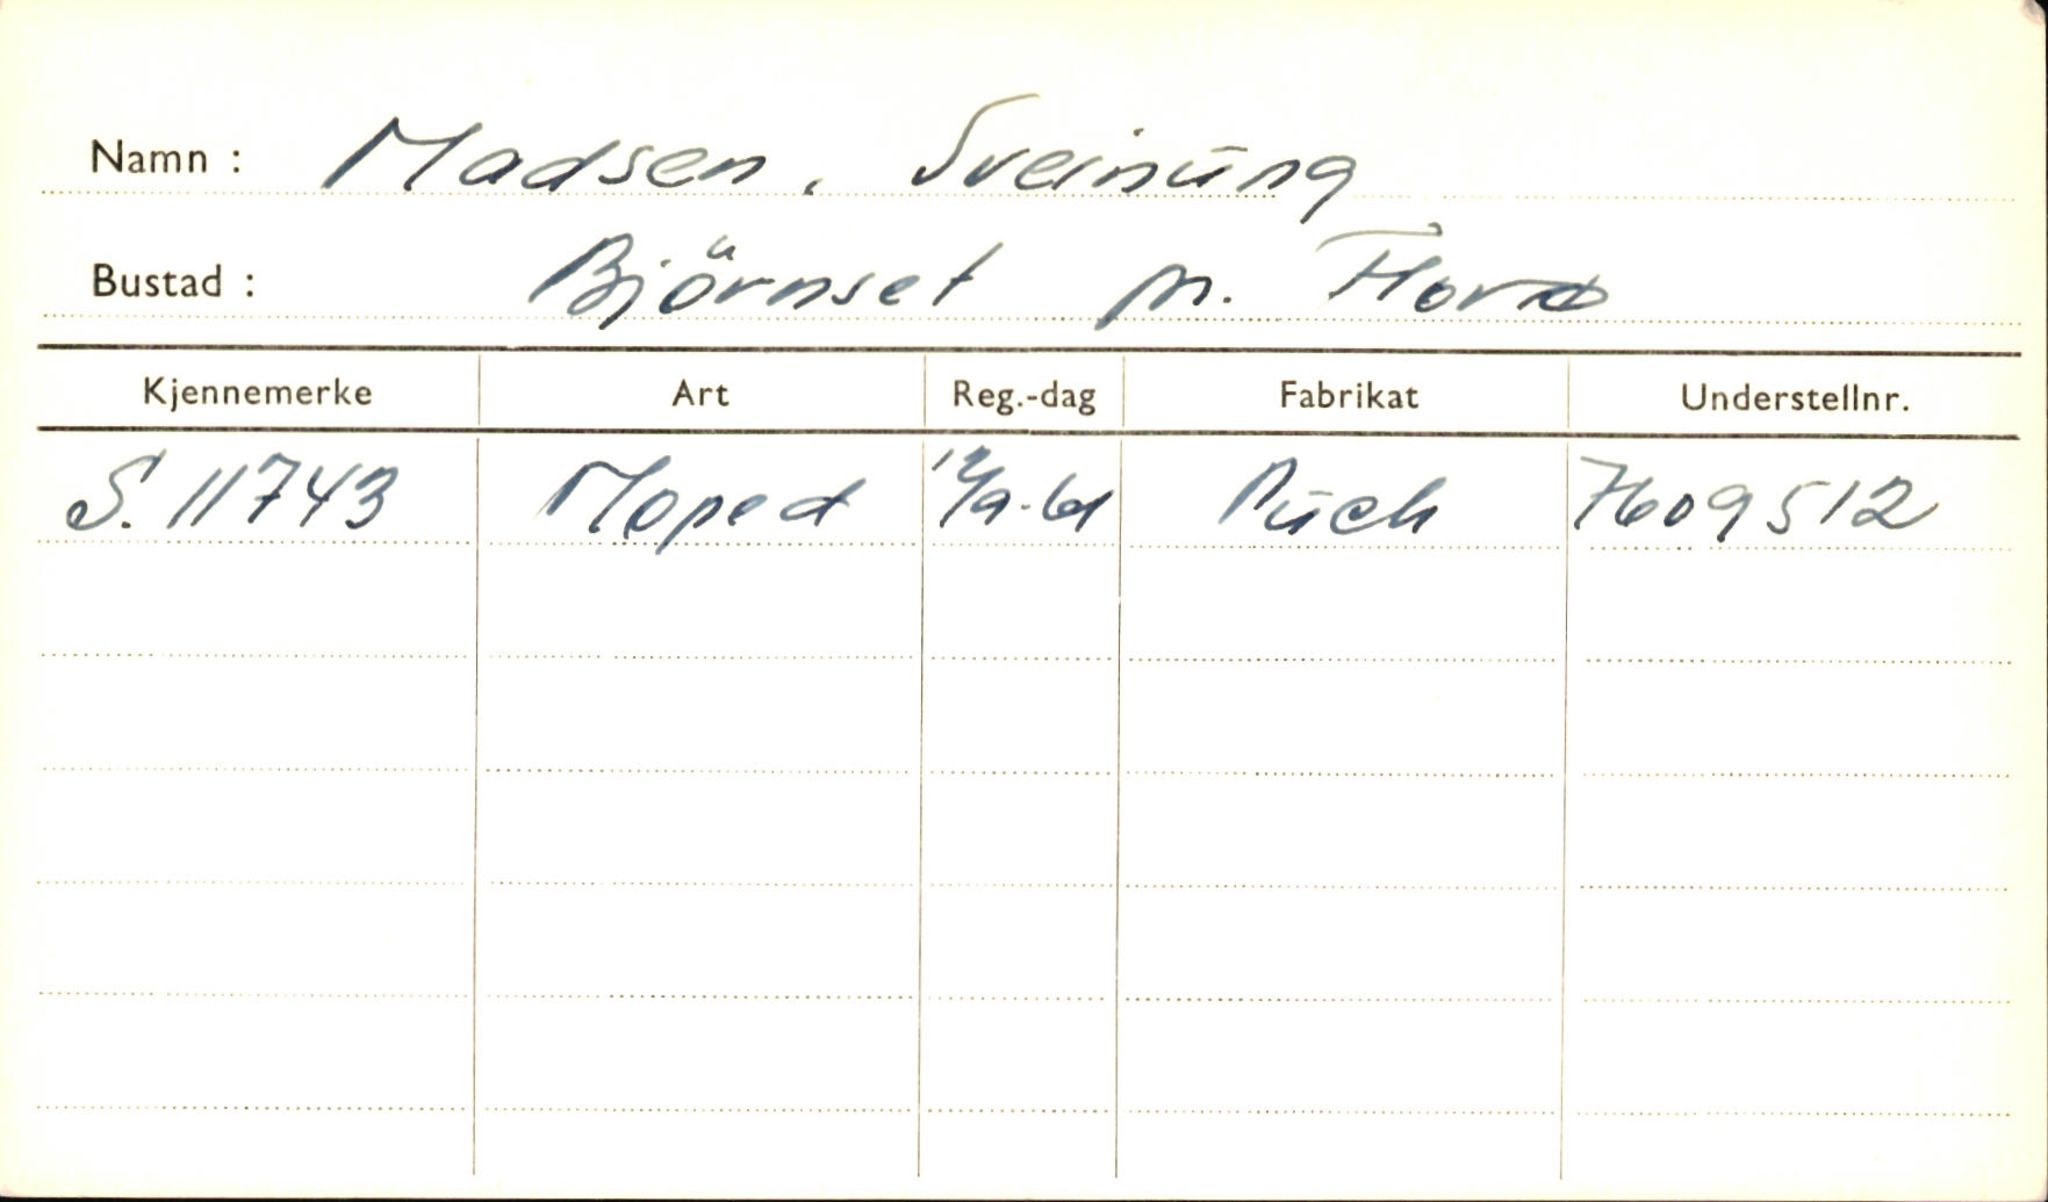 Namn : Madsen, Sveinung
Bustad : Björnset p. Florø
Kjennemerke Art Reg.-dag Fabrikat Understellnr.
S. 11743 Moped Puch 7609512